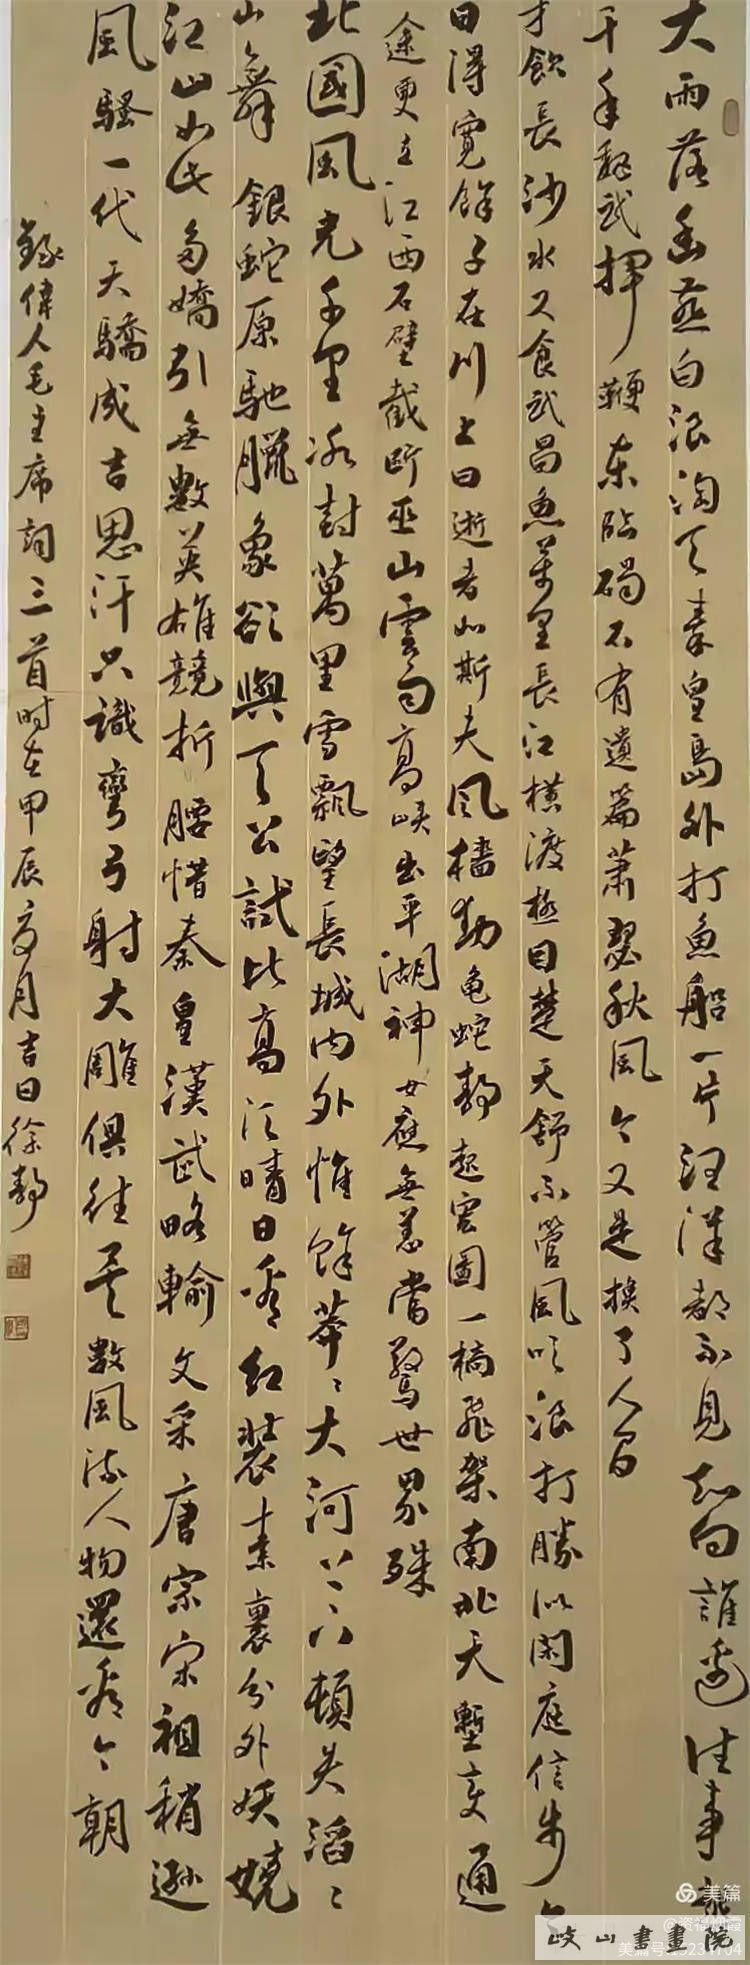 大雨落幽燕白浪滔天秦皇島外打魚船一片汪洋都不見知向誰邊往事越
千年魏武揮鞭東臨碣石有遺篇蕭瑟秋風今又是換了人間
才飲長沙水又食武昌魚萬里長江橫渡極目楚天舒不管風吹浪打勝似閑庭信步今
日得寬餘子在川上曰逝者如斯夫風檣動龜蛇靜起宏圖一橋飛架南北天塹變通
途更立江西石壁截斷巫山雲雨高峽出平湖神女應無恙當驚世界殊
北國風光千里冰封萬里雪飄望長城內外惟餘莽〻大河上下頓失滔〻
山舞銀蛇原馳臘象欲與天公試比高須晴日看紅裝素裹分外妖嬈
江山如此多嬌引無數英雄競折腰惜秦皇漢武略輸文采唐宗宋祖稍遜
風騷一代天驕成吉思汗只識彎弓射大雕俱往矣數風流人物還看今朝
錄偉人毛主席詞三首時在甲辰月吉日徐靜
美篇
岐山書畫院